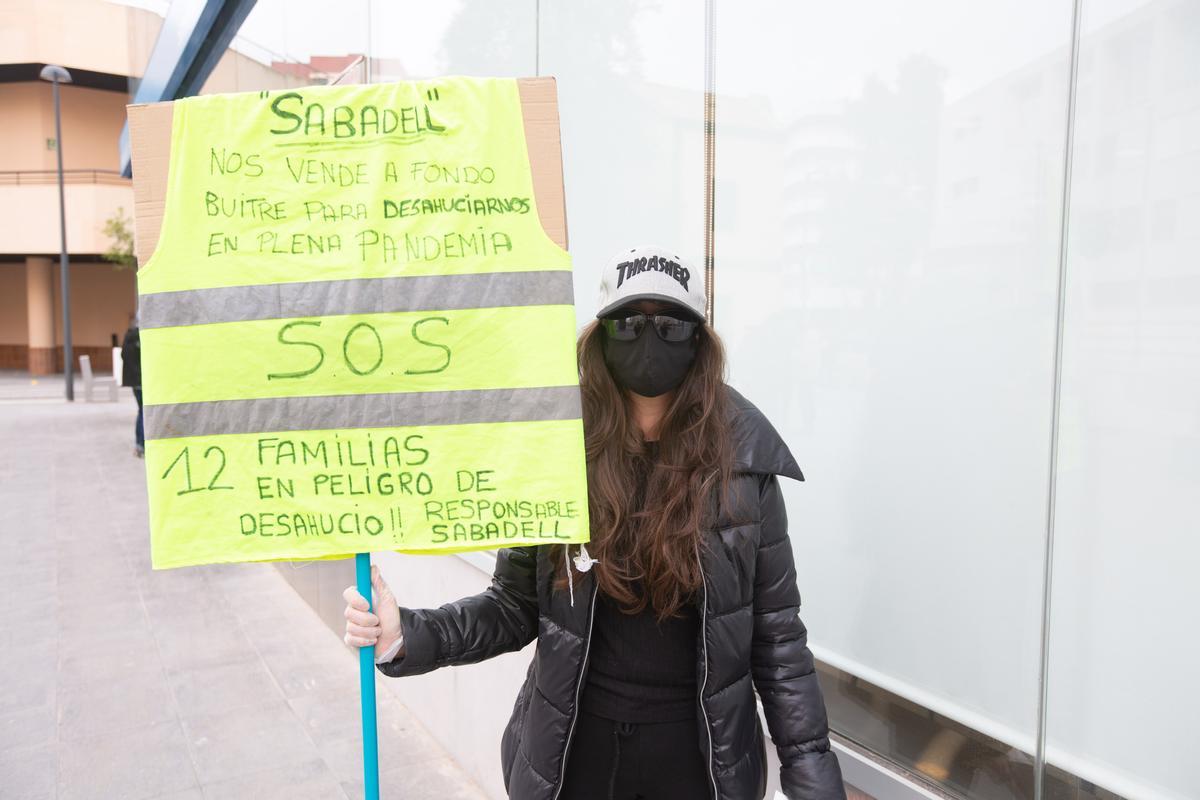 "SABADELL"
NOS VENDE A FONDO
BUITRE PARA DESAHUCIARNOS
EN PLENA PANDEMIA
S.O.S
12 FAMILIAS
EN PELIGRO DE
DESAHUCIO!! RESPONSABLE
SABADELL
THRASHER